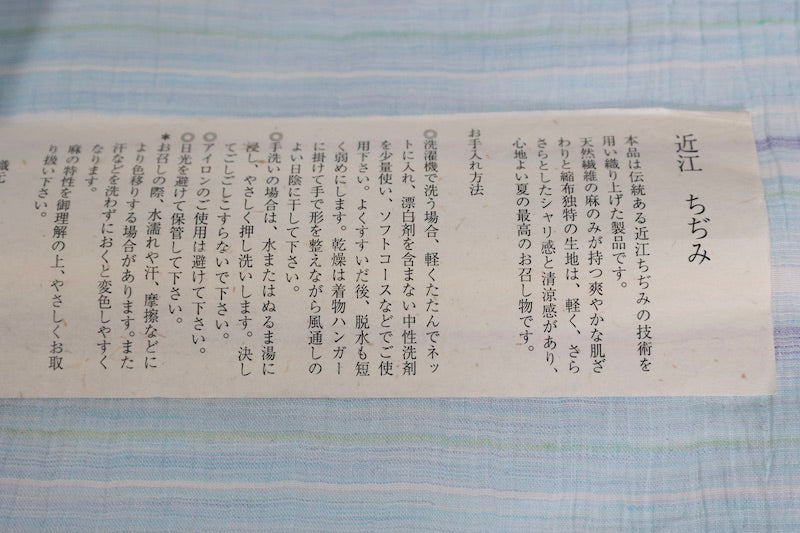 近江 ちぢみ
本品は伝統ある近江ちぢみの技術を
用い織り上げた製品です。
天然繊維の麻のみが持つ爽やかな肌ざ
わりと縮布独特の生地は、軽く、さら
さらとしたシャリ感と清涼感があり、
心地よい夏の最高のお召し物です。
お手入れ方法
◎洗濯機で洗う場合、軽くたたんでネッ
トに入れ、漂白剤を含まない中性洗剤
を少量使い、ソフトコースなどでご使
用下さい。よくすすいだ後、脱水も短
く弱めにします。乾燥は着物ハンガー
に掛けて手で形を整えながら風通しの
よい日陰に干して下さい。
◎手洗いの場合は、水またはぬるま湯に
浸し、やさしく押し洗いします。決し
てごしごしこすらないで下さい。
◎アイロンのご使用は避けて下さい。
◎日光を避けて保管して下さい。
*お召しの際、水濡れや汗、摩擦などに
より色移りする場合があります。また
汗などを洗わずにおくと変色しやすく
なります。
麻の特性を御理解の上、やさしくお取
り扱い下さい。
織元